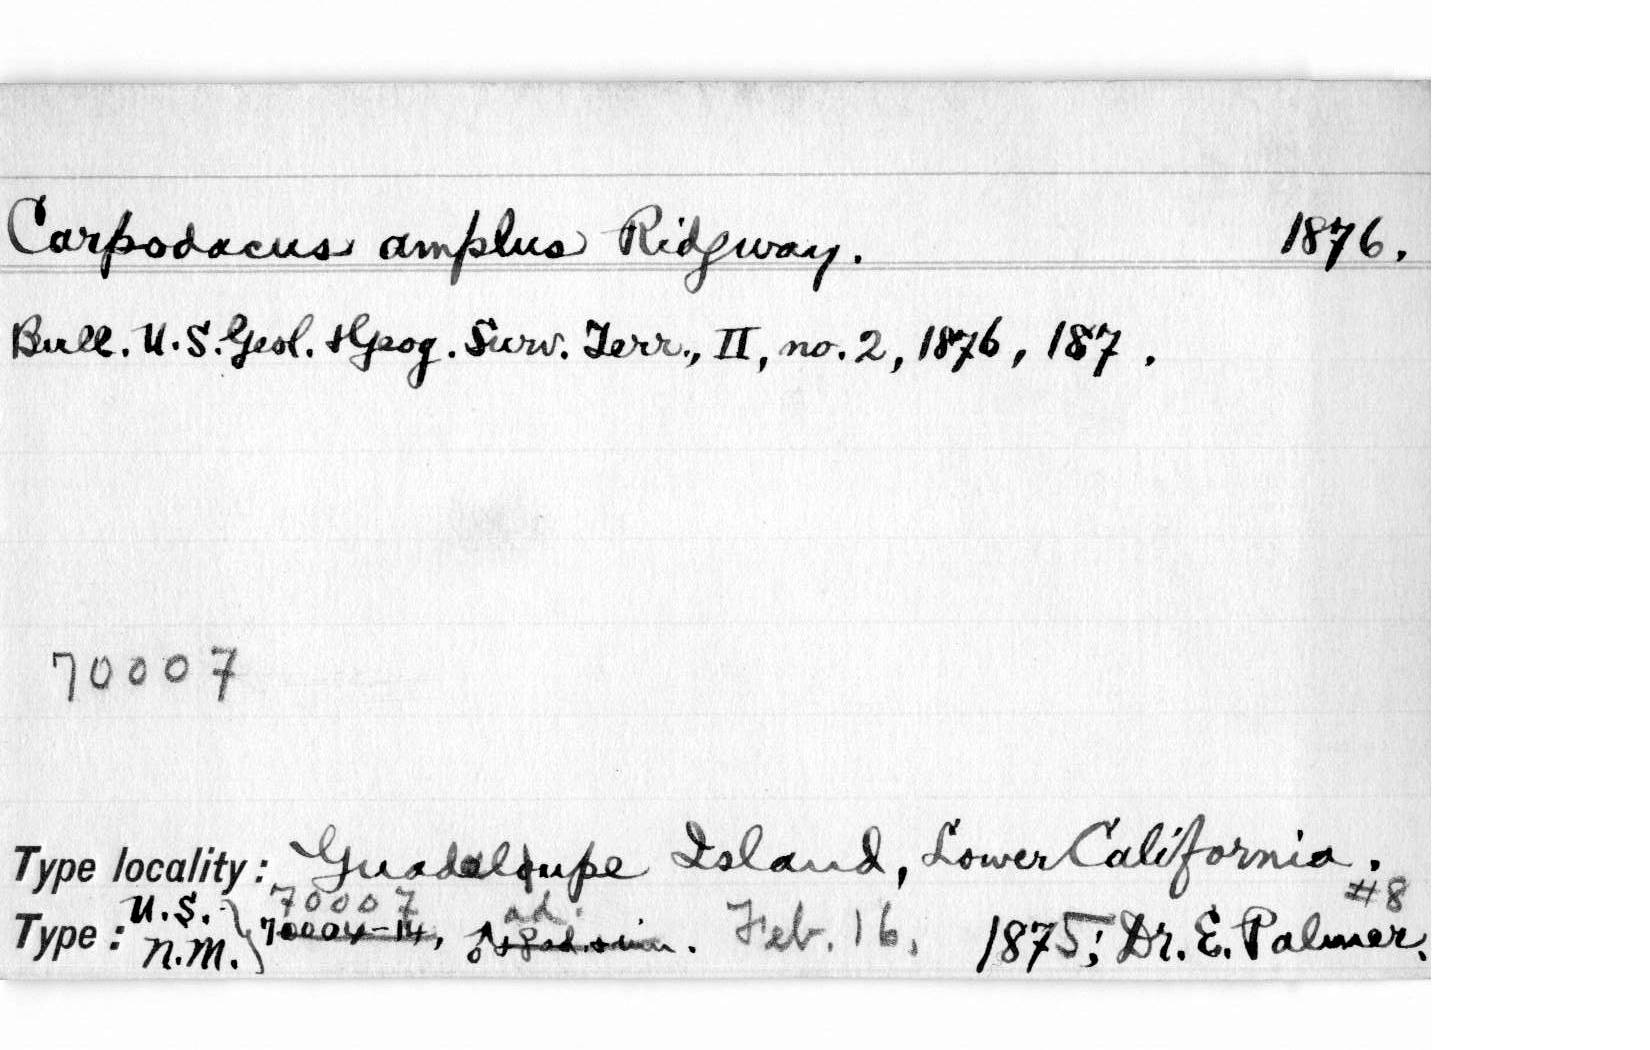 Carpodacus amplus Ridgway. 1876.
Bull. U.S. Geol. & Geog. Surv. Terr., II, no. 2, 1876, 187.
70007
Type locality: Guadeloupe Island, Lower California.
70007 ad. #8
Type: U.S. N.M. 70004-14, ♂ + ♀ ad. + imm. Feb. 16, 1875; Dr. E. Palmer.